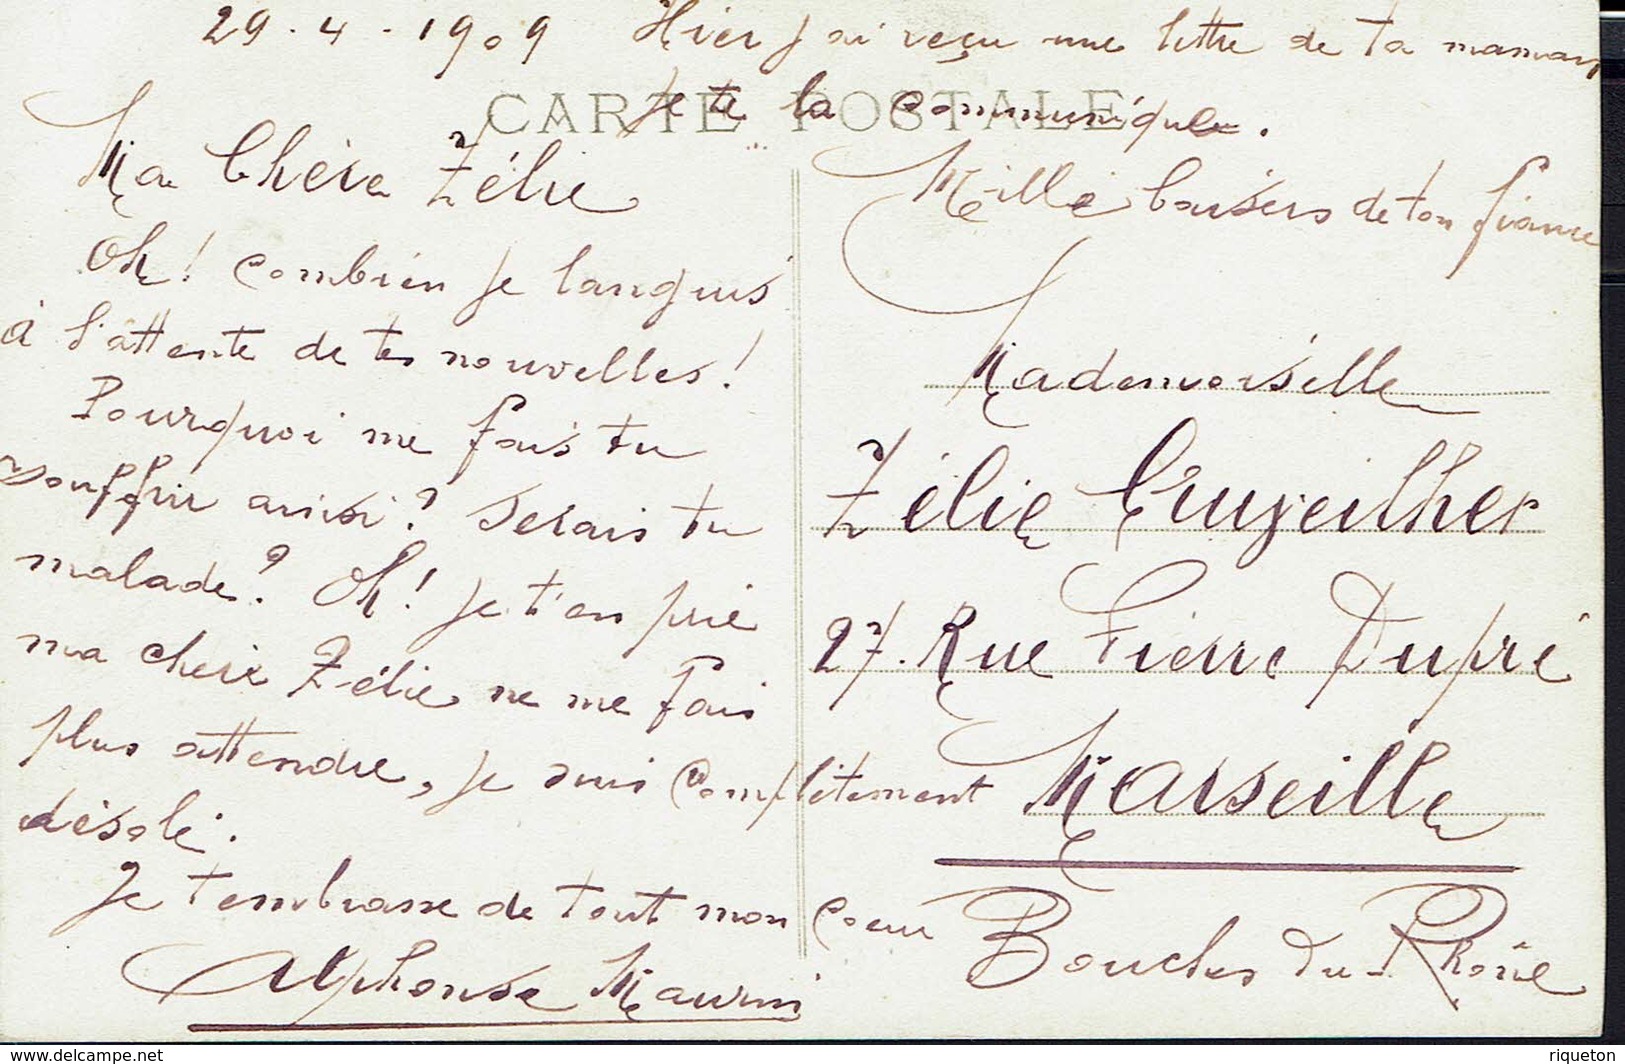 29.4.1909 Hier j'ai reçu une lettre de ta maman
je te la communique.
CARTE POSTALE
Ma Chère Zélie
Oh! Combien je languis
à l'attente de tes nouvelles!
Pourquoi me fais tu
souffrir ainsi? Serais tu
malade? Oh! je t'en prie
ma chère Zélie, ne me fais
plus attendre, je suis complètement
désolé.
Je t'embrasse de tout mon coeur
Alphonse Maurin
Mille baisers de ton fiancé
Mademoiselle
Zélie Crujeilher
27. Rue Pierre Dupré
Marseille
Bouches du Rhône
www.delcampe.net
riqueton